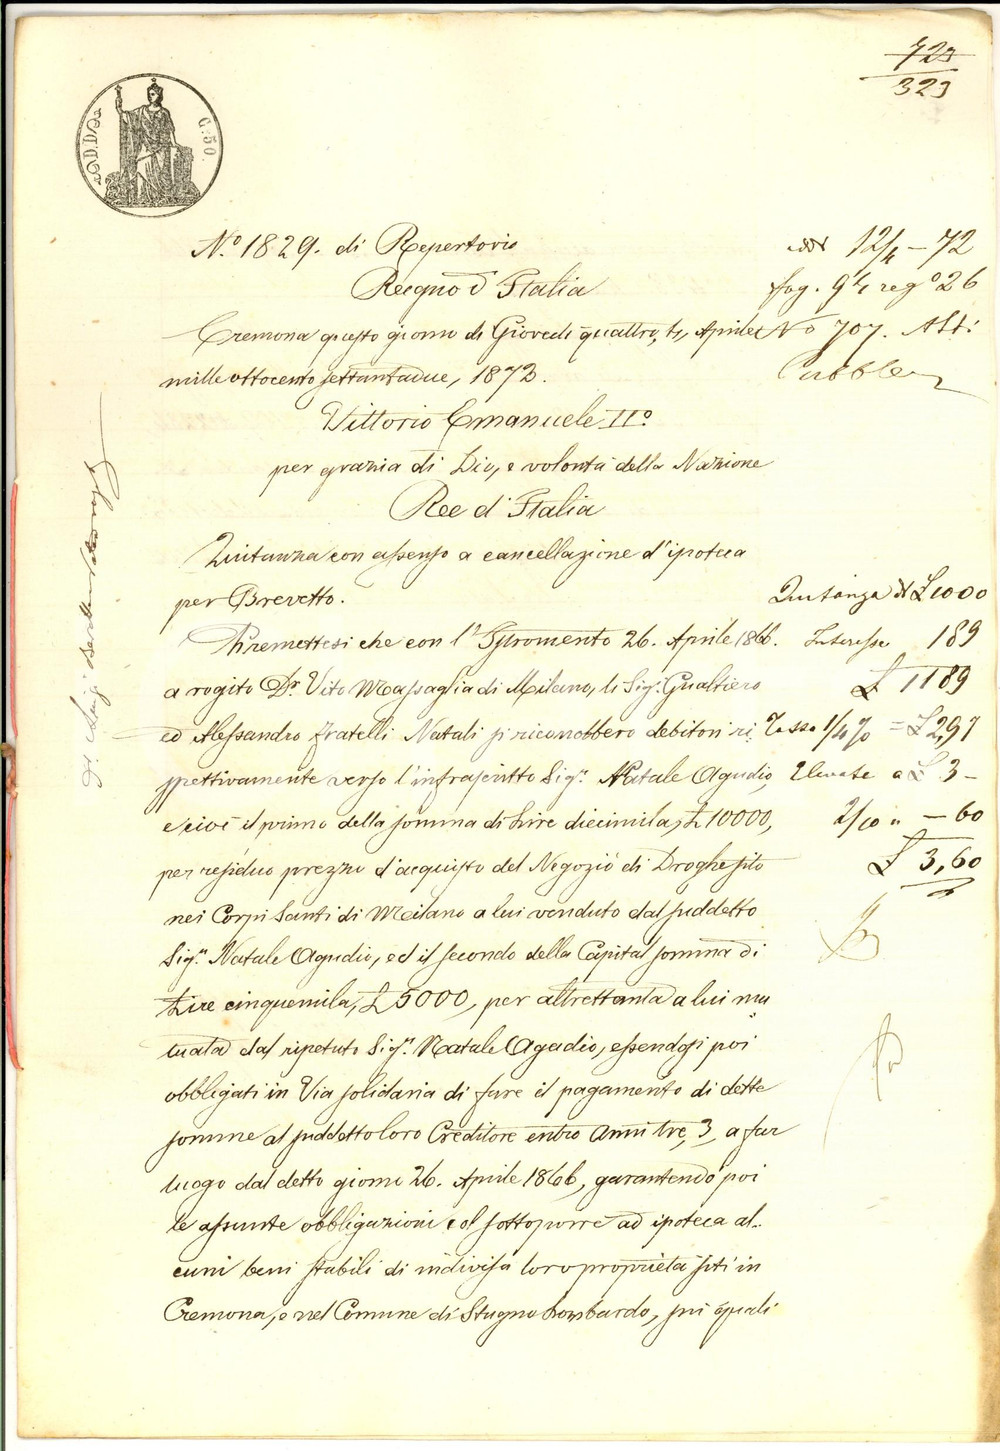 723
323
C. 50
N.° 1829. di Repertorio
Reegno d'Italia
Cremona questo giorno di Giovedì quattro, 4, Aprile
mille ottocento settantadue, 1872.
Vittorio Emanuele II°
per grazia di Dio, e volontà della Nazione
Ree d'Italia
Quitanza con assenso a cancellazione d'ipoteca
per Brevetto.
Premettesi che con l'Istromento 26. Aprile 1866.
a rogito Dr. Vito Massaglia di Milano, li Sigi. Gualtiero
ed Alessandro fratelli Natali si riconobbero debitori ri,
spettivamente verso l'infrascritto Sigr. Natale Agudio,
e cioè il primo della somma di Lire diecimila, £ 10000,
per residuo prezzo d'acquisto del Negozio di Droghe sito
nei Corpi Santi di Milano a lui venduto dal suddetto
Sigr. Natale Agudio, ed il secondo della Capital somma di
Lire cinquemila, £ 5000, per altrettanta a lui mu
tuata dal ripetuto Sigr. Natale Agudio, essendosi poi
obbligati in Via solidaria di fare il pagamento di dette
somme al suddetto loro Creditore entro Anni tre, 3, a far
luogo dal detto giorno 26. Aprile 1866, garantendo poi
le assunte obbligazioni col sottoporre ad ipoteca al..
cuni beni stabili di indivisa loro proprietà siti in
Cremona, e nel Comune di Stagno Lombardo, sui quali
12/4 - 72
fog. 94 reg° 26
N° 707. Atti
Quitanza £ 1000
Interesse 189
£ 1189
Tassa 1/4 % = £ 2,97
Elevate a £ 3 -
2/10 " - 60
£ 3,60